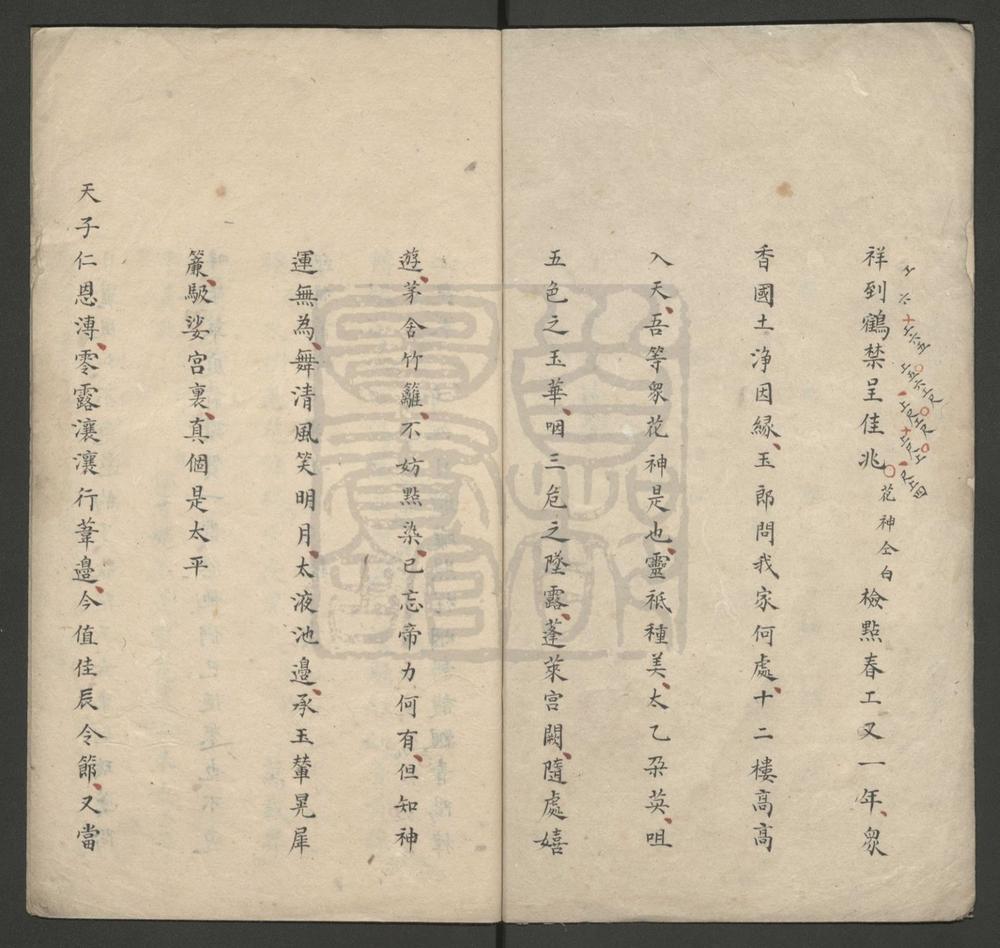 祥到鶴禁呈佳兆花神仝白檢點春工又一年衆
香國土净因緣玉郎問我家何處十二樓高高
入天吾等衆花神是也靈祗種美太乙朶英咀
五色之玉華咽三危之墜露蓬萊宮闕隨處嬉
遊茅舍竹籬不妨點染已忘帝力何有但知神
運無為舞清風笑明月太液池邊承玉輦晃犀
簾馺娑宮裏真個是太平
天子仁恩溥零露瀼瀼行葦邉今值佳辰令節又當